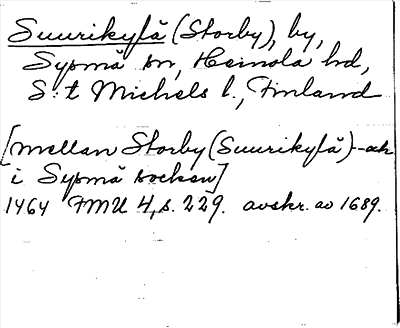 Suurikylä (Storby), by,
Sysmä sn, Heinola hd,
S:t Michels l., Finland
[mellan Storby (Suurikylä) - - och
i Sysmä socken]
1464 FMU 4, s. 229. avskr. av 1689.